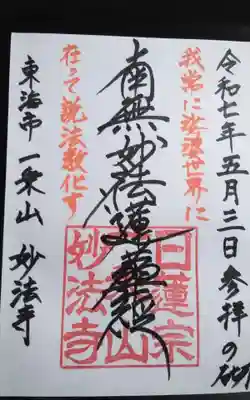 令和七年五月三日参拝の砌
我常に娑婆世界に
在って説法教化す
南無妙法蓮華経
日蓮宗
一乗山
妙法寺
東海市 一乗山 妙法寺